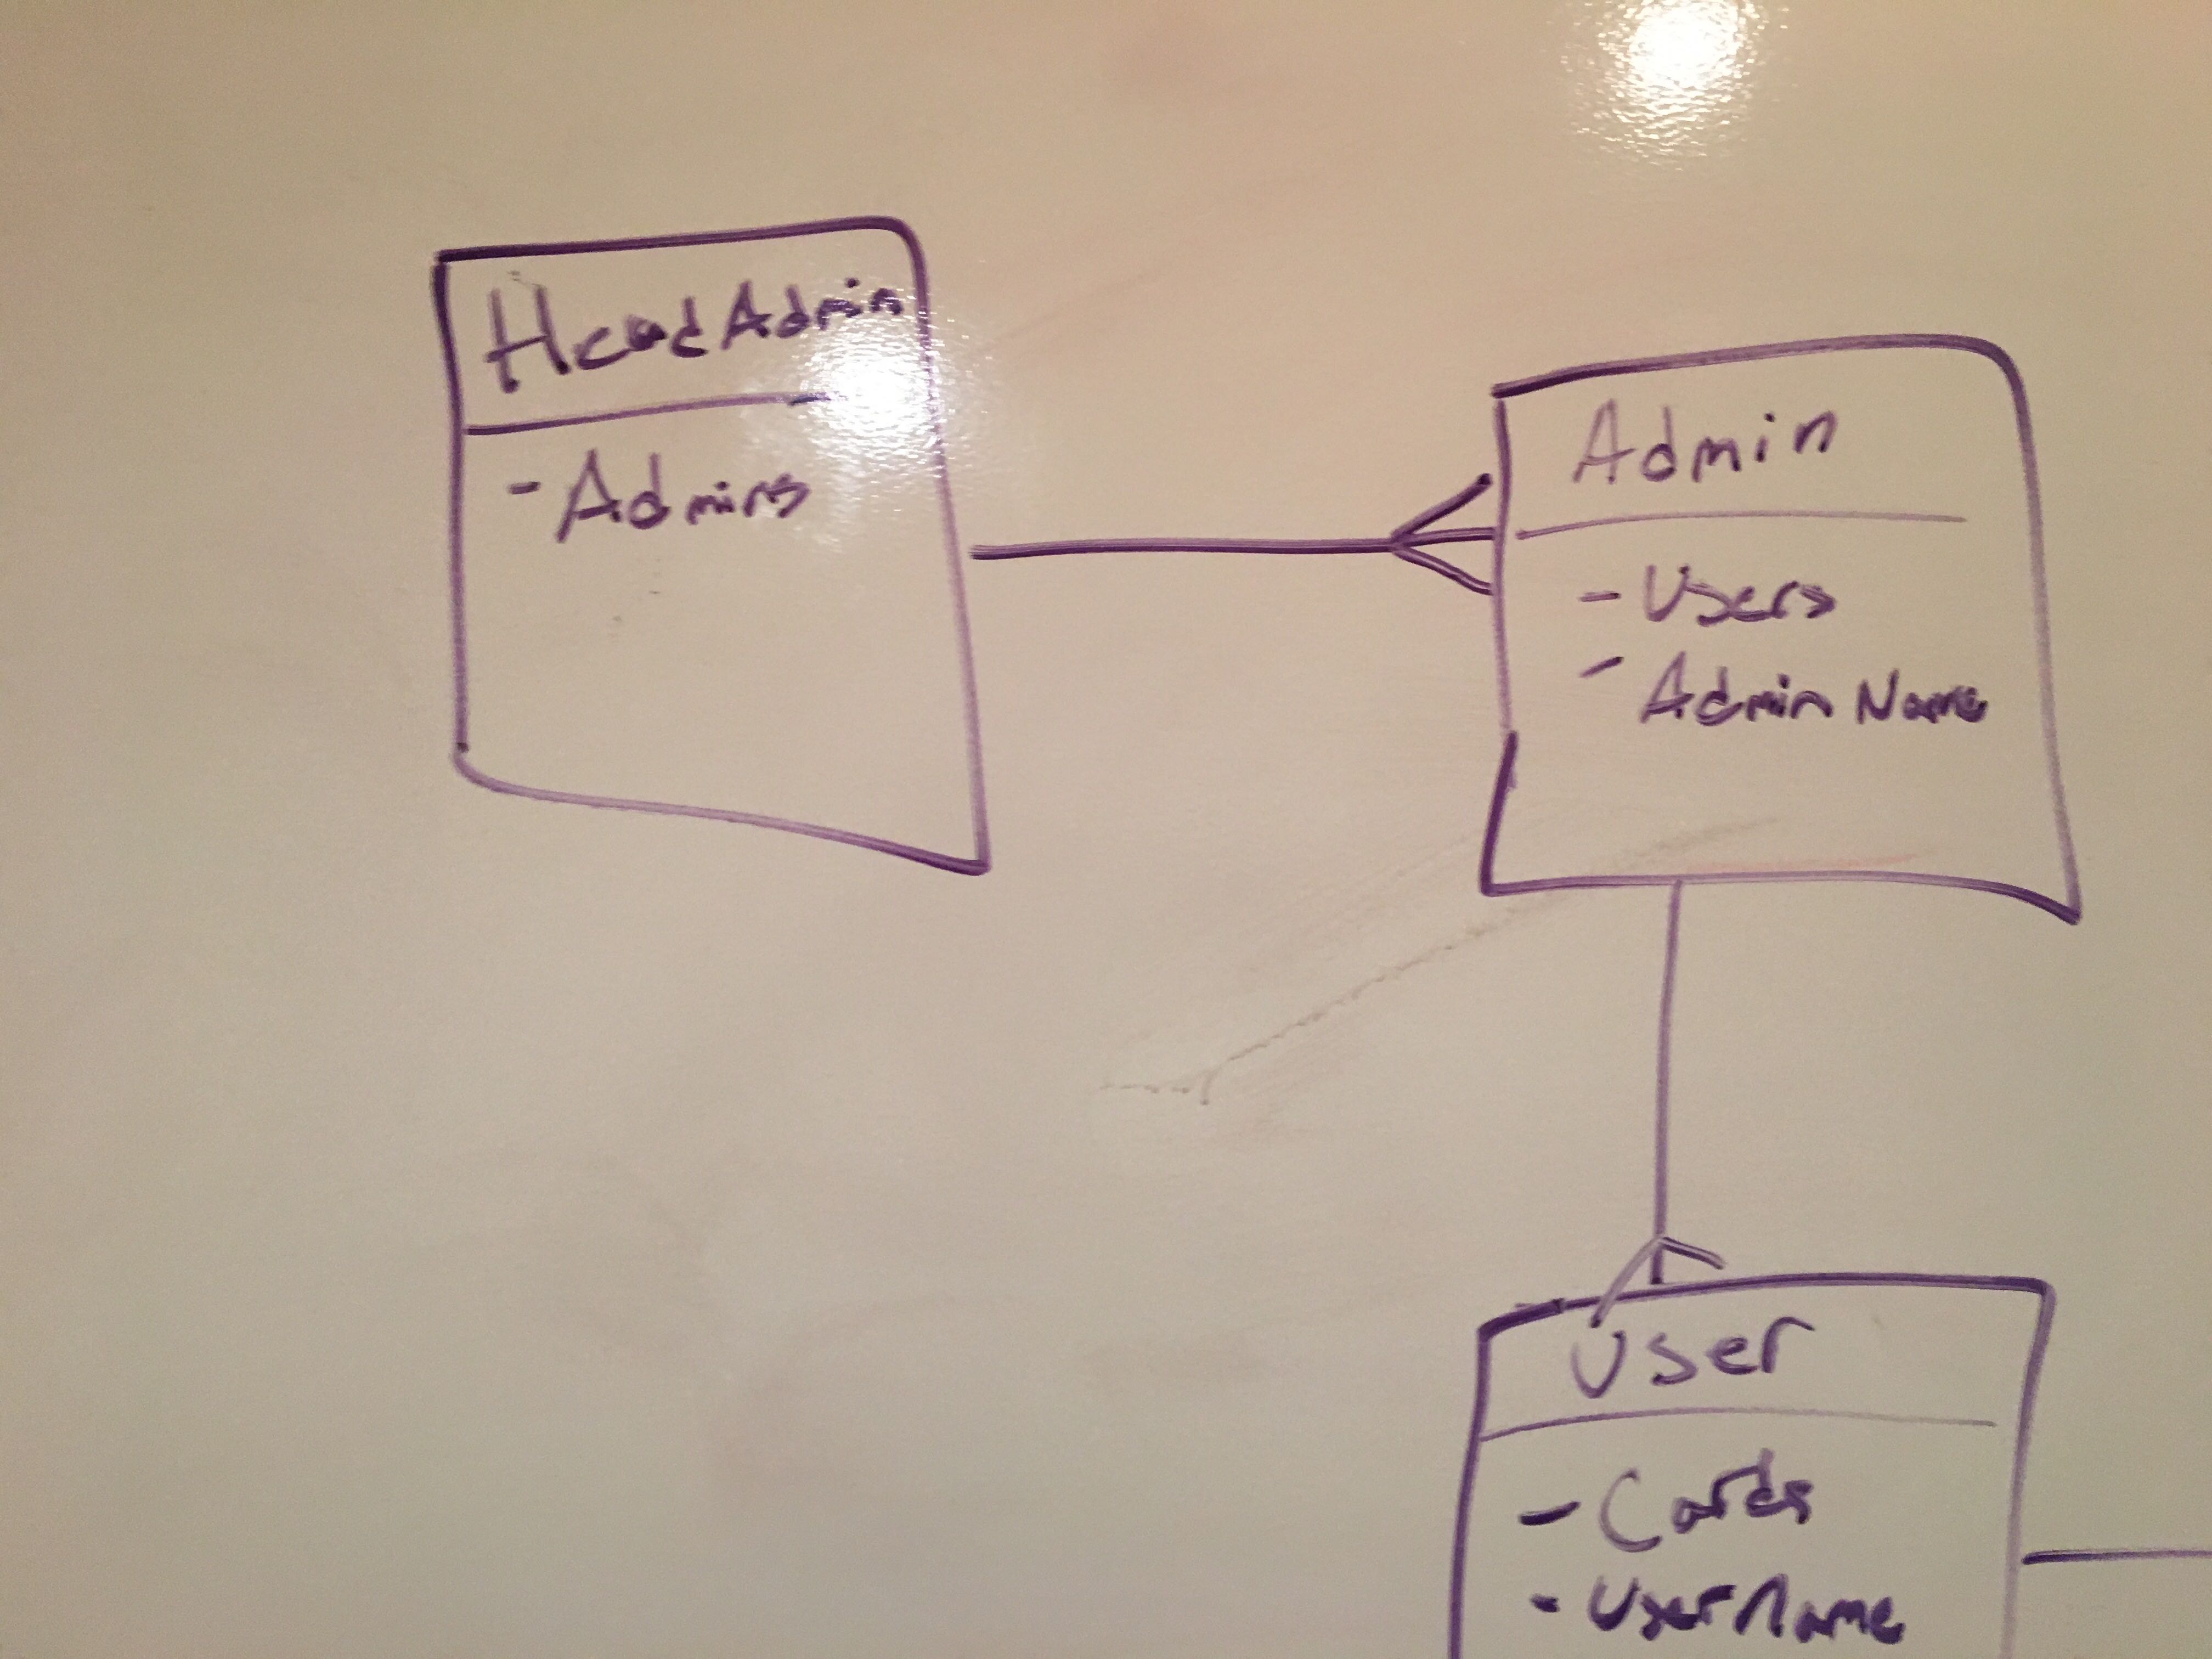 HeadAdmin
- Admins
Admin
- Users
- Admin Name
User
- Cards
- UserName